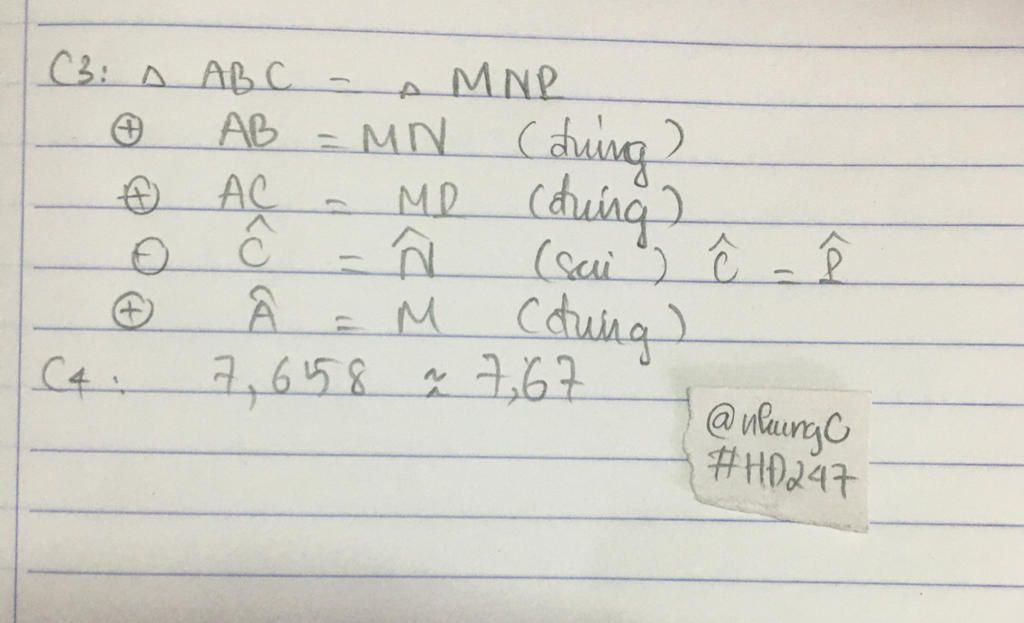 C3: Δ ABC = Δ MNP
⊕ AB = MN (đúng)
⊕ AC = MP (đúng)
⊖ Ĉ = N̂ (sai) Ĉ = P̂
⊕ Â = M (đúng)
C4: 7,658 ≈ 7,67
@nhungC
#HD247